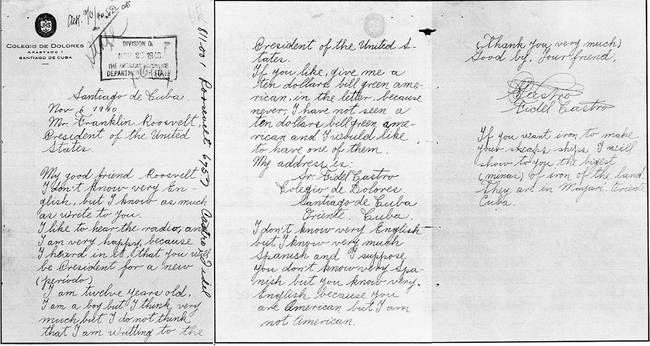 COLEGIO DE DOLORES
APARTADO 1
SANTIAGO DE CUBA
DIVISION OF
DEPARTMENT OF STATE
Santiago de Cuba.
Nov 6 1940.
Mr. Franklin Roosvelt
President of the United
States.
My good friend Roosvelt
I don't know very En-
glish, but I know as much
as write to you.
I like to hear the radio, and
I am very happy, because
I heard in it, that you will
be President for a new
(periodo)
I am twelve years old.
I am a boy but I think very
much but I do not think
that I am writting to the
811.001 Roosevelt 6757
Castro, Fidel
President of the United St-
ates.
If you like, give me a
ten dollars bill green ame-
rican, in the letter, because
never, I have not seen a
ten dollars bill green ame-
rican and I would like
to have one of them.
My address is:
Sr. Fidel Castro
Colegio de Dolores
Santiago de Cuba
Oriente. Cuba.
I don't know very English
but I know very much
Spanish and I suppose
you don't know very Spa-
nish but you know very
English because you
are American but I am
not American.
(Thank you very much)
Good by. Your friend,
Fidel Castro
If you want iron to make
your sheaps ships I will
show to you the bigest
(minas) of iron of the land.
They are in Mayari. Oriente
Cuba.